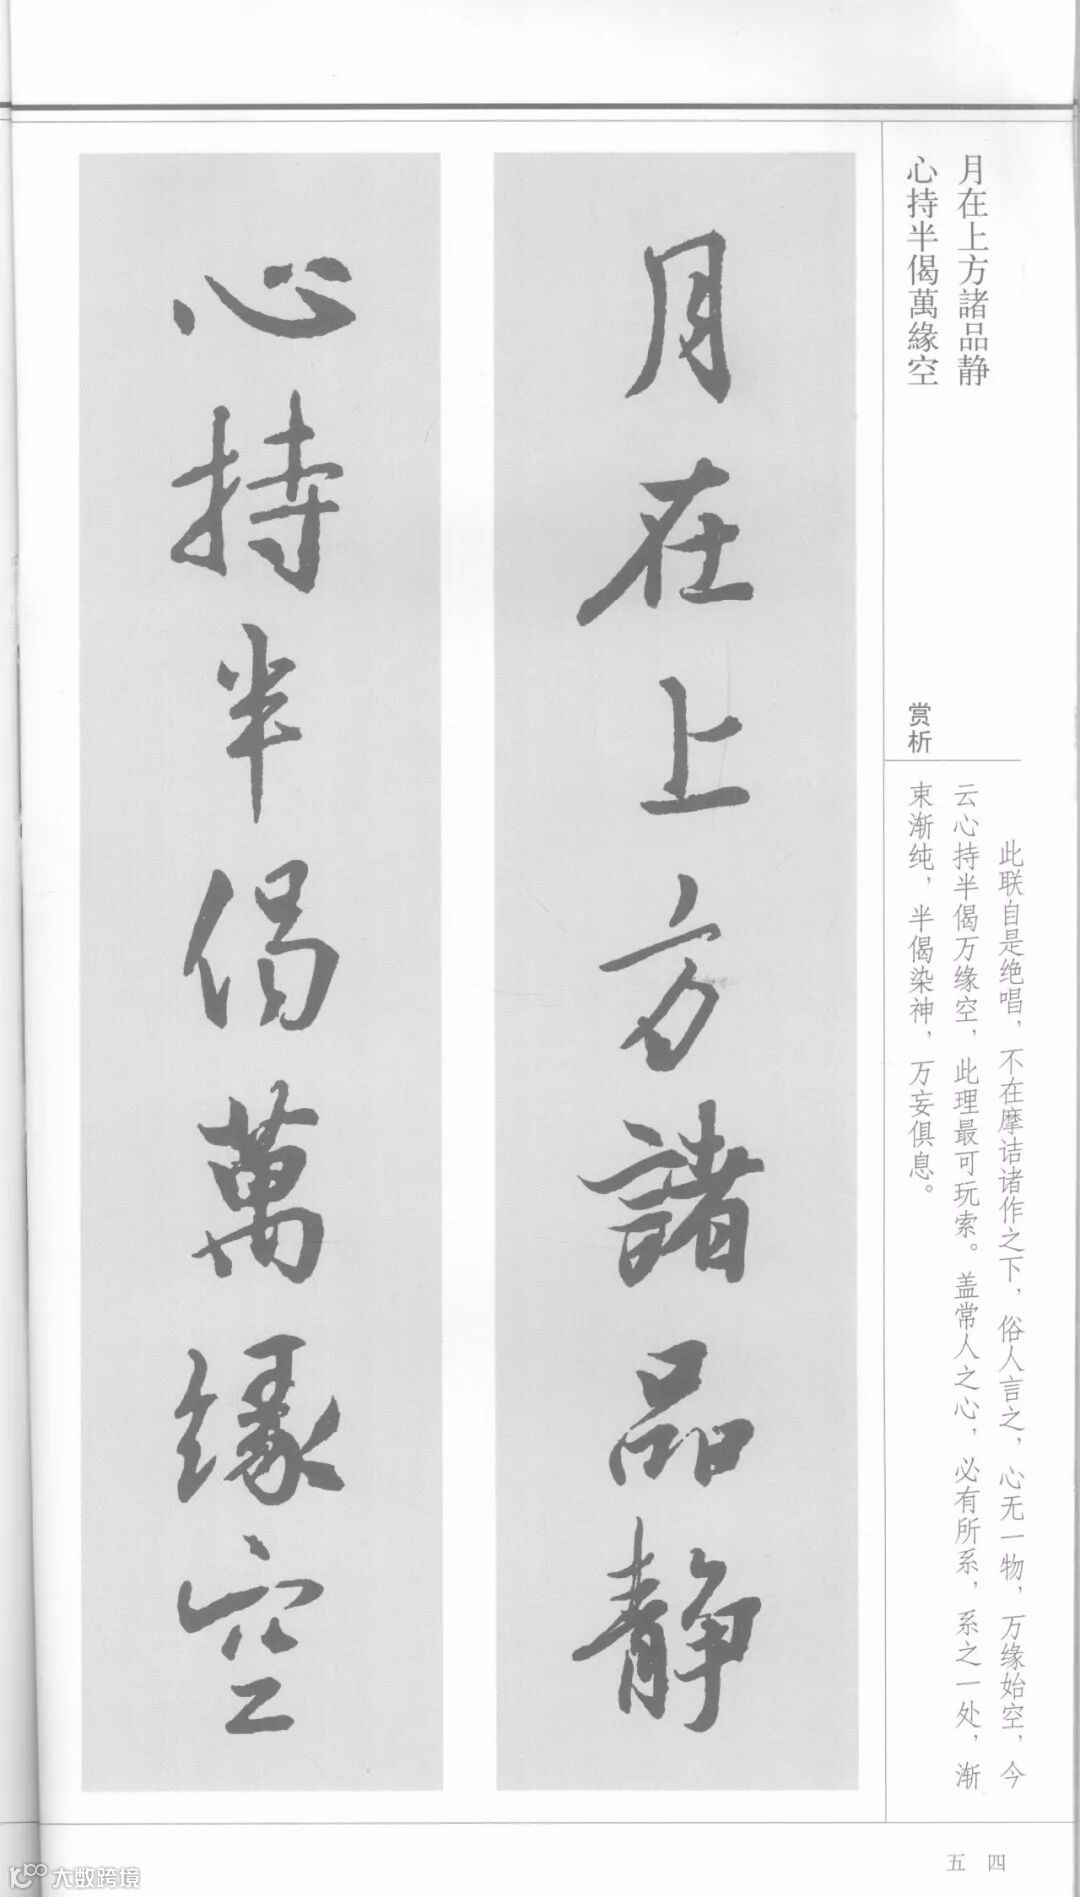 月在上方諸品静
心持半偈萬緣空
赏析
此联自是绝唱，不在摩诘诸作之下，俗人言之，心无一物，万缘始空，今
云心持半偈万缘空，此理最可玩索。盖常人之心，必有所系，系之一处，渐
束渐纯，半偈染神，万妄俱息。
月在上方諸品静
心持半偈萬緣空
四五
大数跨境